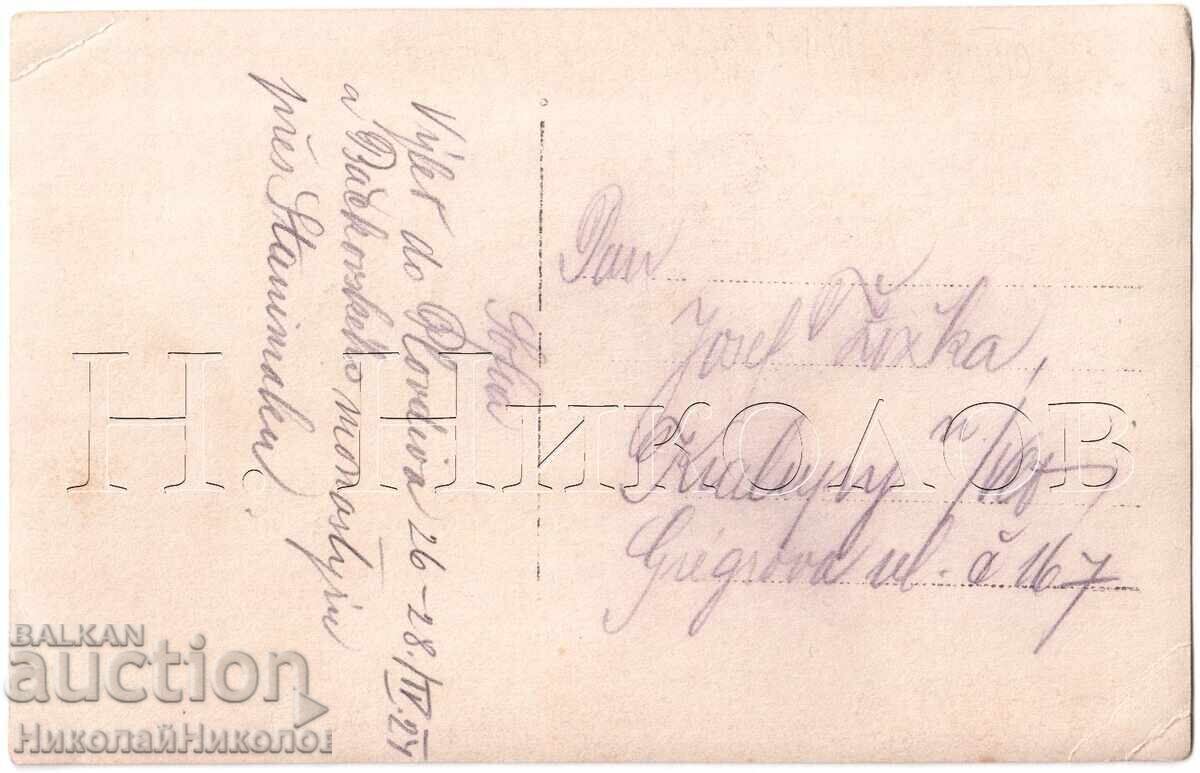 Sofia
Výlet do Plovdiva 26–28./IV.24
a Bačkovského monastyru
přes Stanimaku.
Pan
Josef Žižka,
Kralupy n/Vlt
Grégrova ul. č 167
Н. Николов
BALKAN
auction
НиколайНиколов